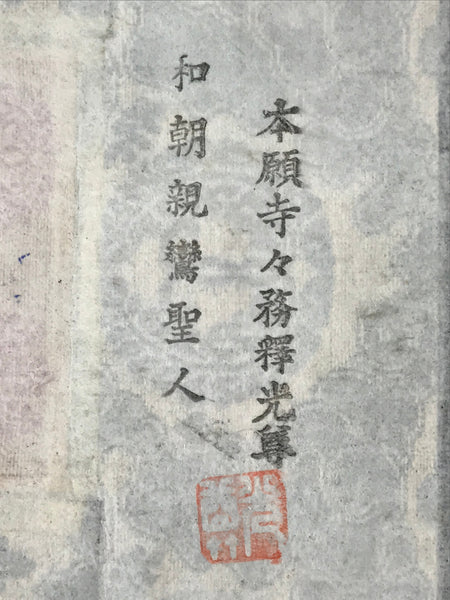 本願寺々務釋光尊
和朝親鸞聖人